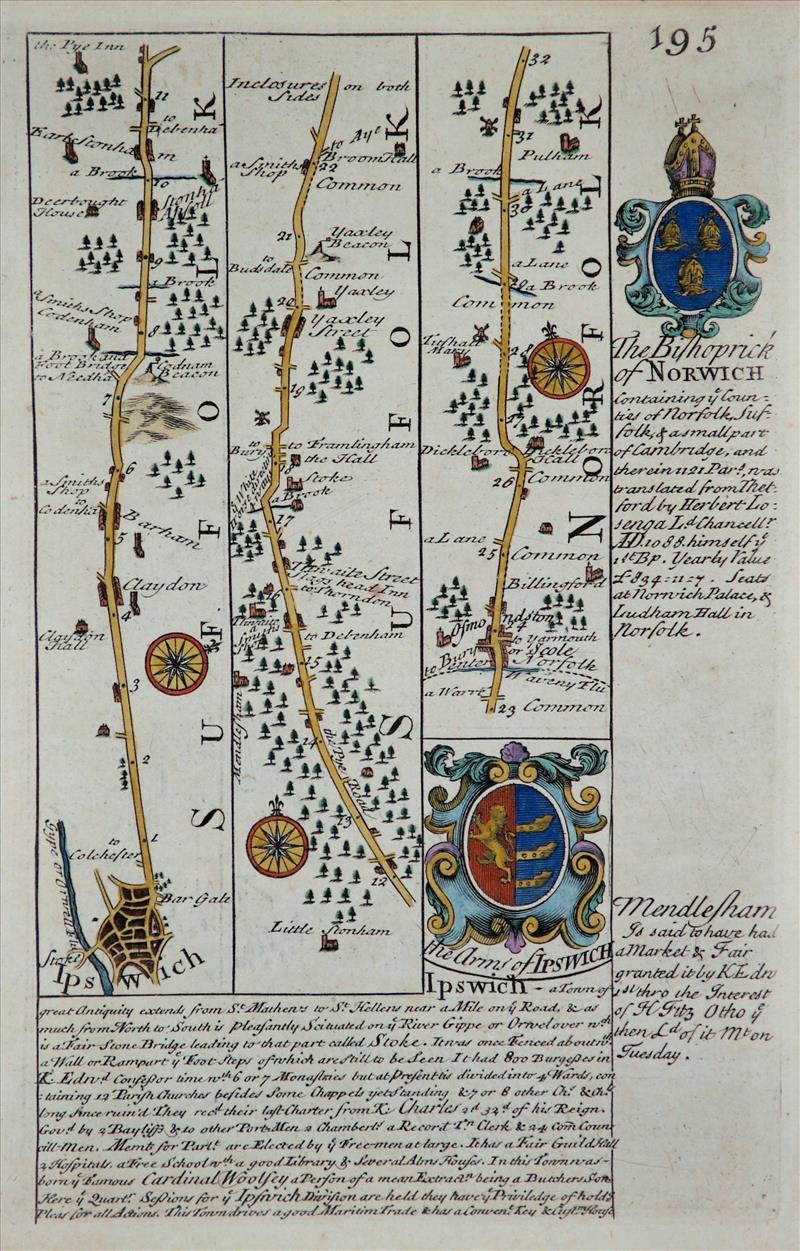 195
the Pye Inn
11
to
Debenha
m
Earl Stonha
a Brook
10
Stonha
Aspoll
Deerbought
House
9
a Brook
a Smiths Shop
Codenham
8
a Brook and
Foot Bridge
to Needha
Codnam
Beacon
7
6
a Smiths
Shop
to
Codenha
Barham
5
Claydon
4
Claydon
Hall
3
2
1
to
Colchester
Bar Gate
Gype or Orwell Flu
Stoke
Ipswich
SUFFOLK
Inclosures on both
Sides
to Aye
Broom Hall
a Smiths
Shop
22
Common
21
Yaxley
Beacon
to
Budsdale
Common
20
Yaxley
Yaxley
Street
19
to
Bury
to Framlingham
the Hall
18
Stoke
a Brook
17
Thwaite Street
Stags head Inn
to Thorndon
16
Thwaite
a
Smiths
to Debenham
15
Mendlesham
14
the Pye Road
13
12
Little Stonham
SUFFOLK
32
31
Pulham
a Brook
a Lane
30
a Lane
29
a Brook
Common
28
Tushall
Mary
27
Dickleborg
Dickleborg
Hall
26
Common
a Lane
25
Common
Billingford
Osmondston
24
to Yarmouth
or Scole
to Bury
to Venter
Norfolk
Waveny Flu
a Warrē
23 Common
NORFOLK
the Arms of IPSWICH
The Byshoprick
of NORWICH
Containing yᵉ Coun=
ties of Norfolk, Suf=
folk, & a small part
of Cambridge, and
therein 1121 Parˢ. was
translated from Thet=
ford by Herbert Lo=
senga Lᵈ. Chancellʳ
AD. 1088. himself yᵉ
1ˢᵗ Bp. Yearly Value
£834:11:7. Seats
at Norwich Palace, &
Ludham Hall in
Norfolk.
Mendlesham
Is said to have had
a Market & Fair
granted it by K Edw
1ˢᵗ thro the Interest
of H Fitz Otho yᵉ
then Lᵈ of it Mᵗ on
Tuesday.
Ipswich - a Town of
great Antiquity extends from Sᵗ. Mathews to Sᵗ Hellens near a Mile on yᵉ Road, & as
much from North to South is pleasantly Scituated on yᵉ River Gippe or Orwel over wᶜʰ
is a Fair Stone Bridge leading to that part called Stoke. It was once Fenced about wᵗʰ
a Wall or Rampart yᵉ Foot Steps of which are still to be Seen It had 800 Burgesses in
K. Edwᵈ Confessor time wᵗʰ 6 or 7 Monastries but at Present tis divided into 4 Wards, con
taining 12 Parish Churches besides Some Chappels yet standing & 7 or 8 other Chˢ & Chˢ
long Since ruin'd They recᵈ their last Charter from K. Charles 2ᵈ 32ᵈ of his Reign.
Govᵈ by 2 Bayliffs & 10 other Port-Men 2 Chambertˢ a Record Tⁿ Clerk & 24 com Coun
cill-Men. Memb. for Parlᵗ are Elected by yᵉ Free-men at large. It has a Fair Guild Hall
2 Hospitals. a Free School wᵗʰ a good Library & Several Alms Houses. In this Town was
born yᵉ Famous Cardinal Woolsey a Person of a mean Extractⁿ being a Butchers Son
Here yᵉ Quartʳ Sessions for yᵉ Ipswich Division are held they have yᵉ Priviledge of holdᵍ
Pleas for all Actions. This Town drives a good Maritim Trade & has a Convenᵗ Key & Custᵐ House